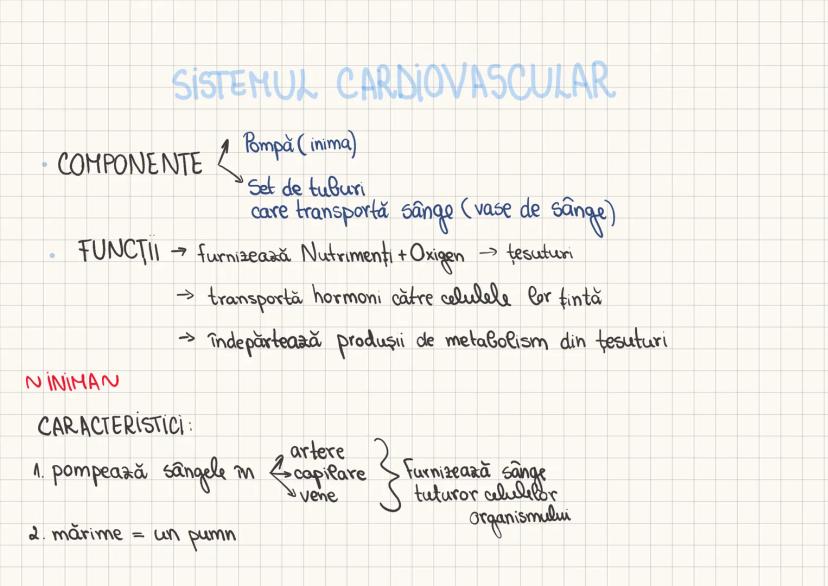 SISTEMUL CARDIOVASCULAR
• COMPONENTE
Pompă (inima)
Set de tuburi
care transportă sânge (vase de sânge)
• FUNCȚII → furnizează Nutrimenți + Oxigen → țesuturi
→ transportă hormoni către celulele lor țintă
→ îndepărtează produșii de metabolism din țesuturi
~ INIMA ~
CARACTERISTICI:
1. pompează sângele în
artere
capilare
vene
Furnizează sânge
tuturor celulelor
organismului
2. mărime = un pumn